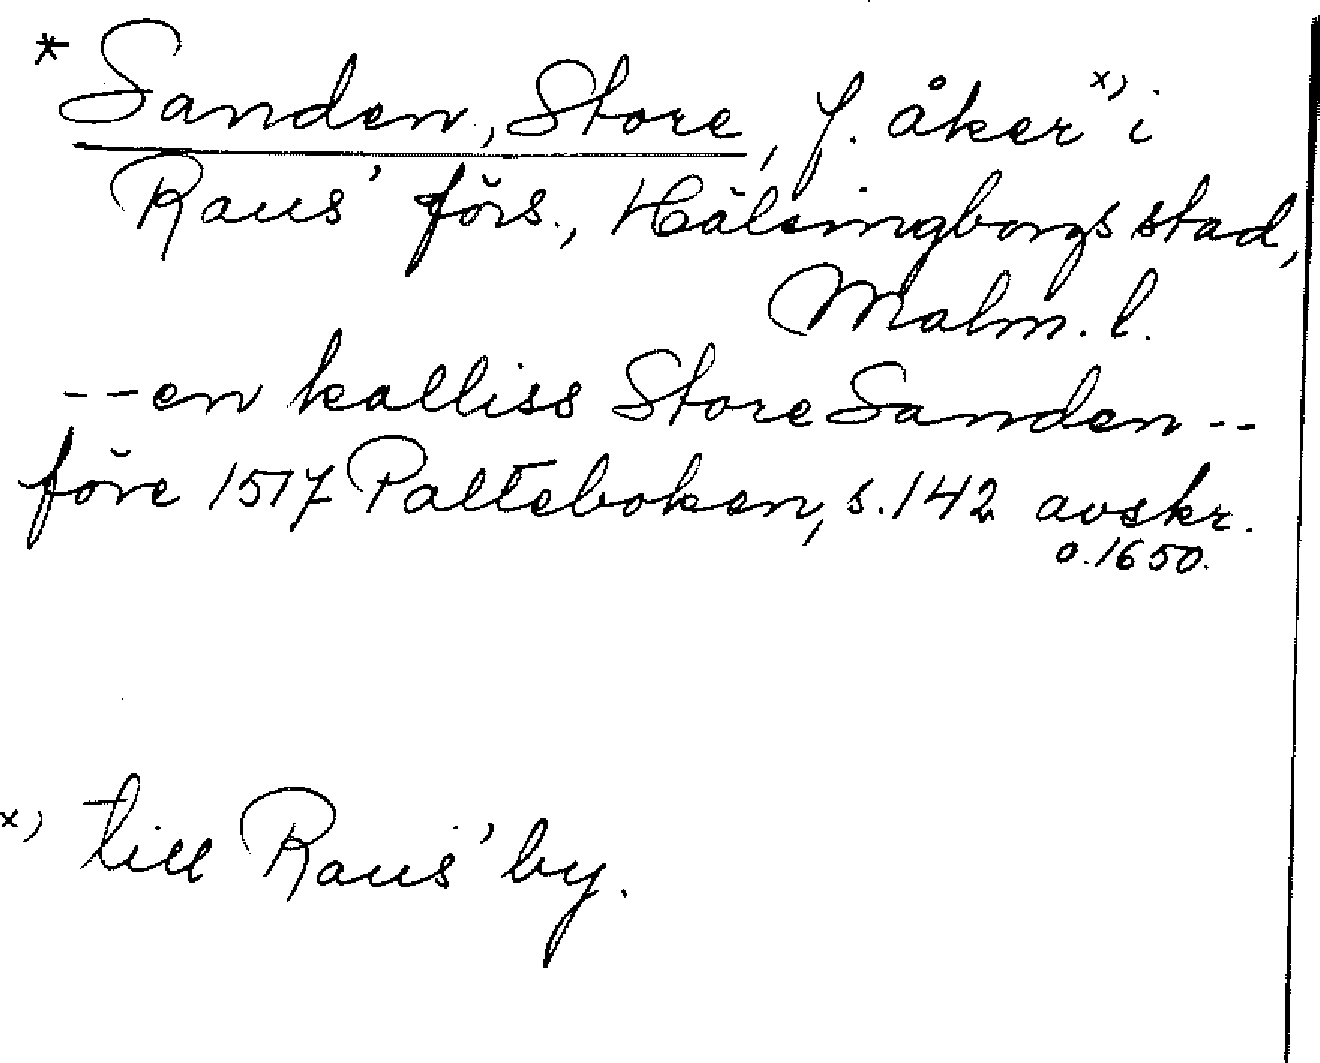 * Sanden, Store, f. åker x) i
Raus' förs., Hälsingborgs stad,
Malm. l.
--en kalliss Store Sanden--
före 1517 Palteboken, s. 142 avskr.
o. 1650.
x) till Raus' by.